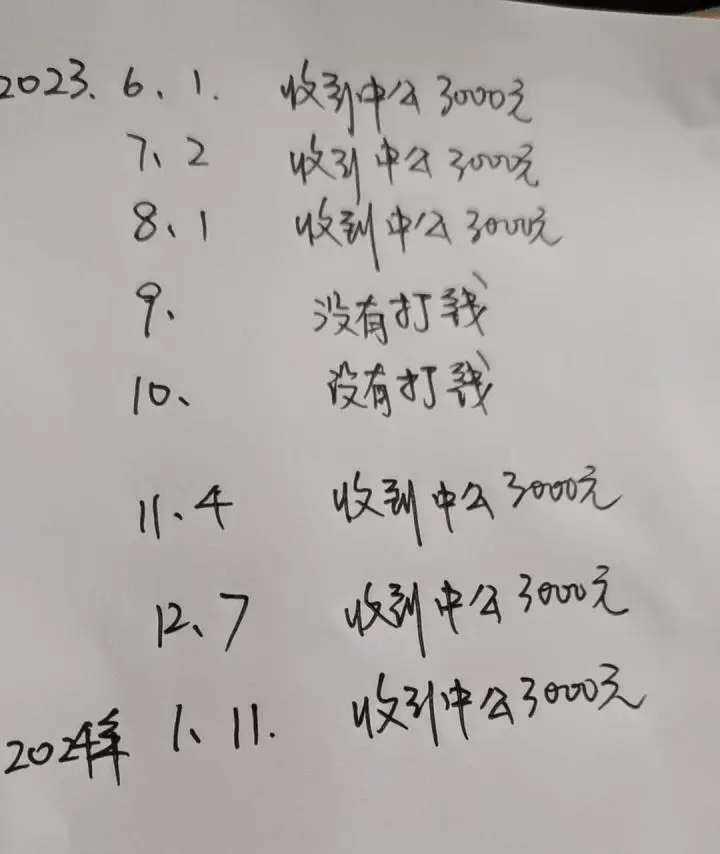 2023. 6、1. 收到中公3000元
7、2 收到中公3000元
8、1 收到中公3000元
9、 没有打钱
10、 没有打钱
11、4 收到中公3000元
12、7 收到中公3000元
2024年 1、11. 收到中公3000元